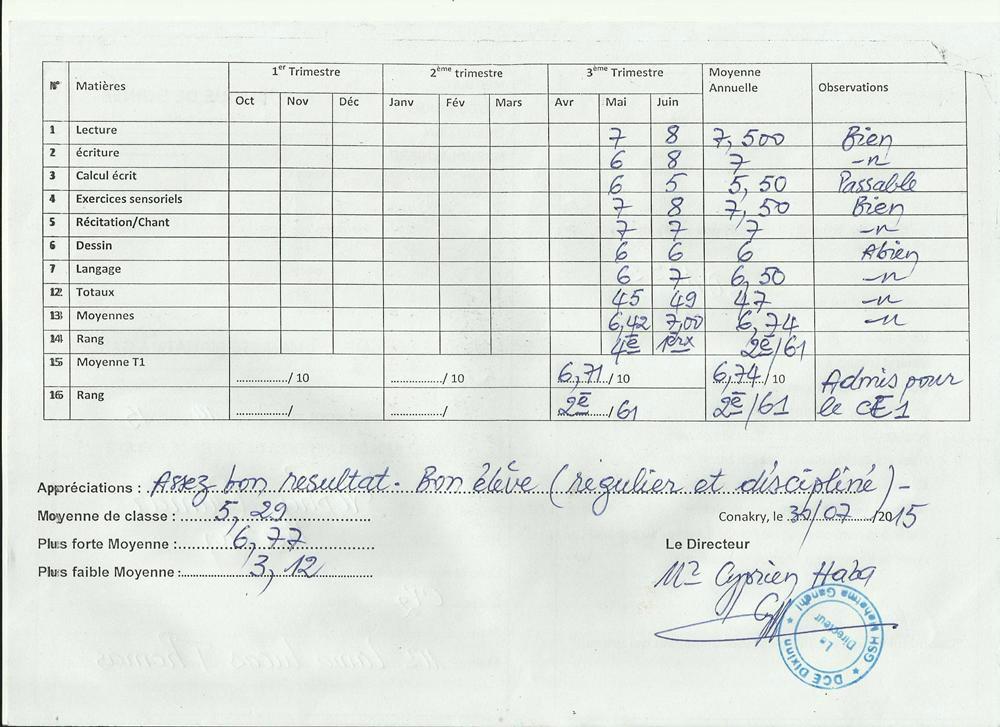 N° Matières 1er Trimestre 2ème trimestre 3ème Trimestre Moyenne Annuelle Observations
Oct Nov Déc Janv Fév Mars Avr Mai Juin
1 Lecture 7 8 7,500 Bien
2 écriture 6 8 7 -"-
3 Calcul écrit 6 5 5,50 Passable
4 Exercices sensoriels 7 8 7,50 Bien
5 Récitation/Chant 7 7 7 -"-
6 Dessin 6 6 6 Abien
7 Langage 6 7 6,50 -"-
12 Totaux 45 49 47 -"-
13 Moyennes 6,42 7,00 6,74 -"-
14 Rang 4è 1erx 2è/61
15 Moyenne T1 ................/ 10 ................/ 10 6,71/ 10 6,74/ 10 Admis pour
16 Rang ................/ ................/ 2è/ 61 2è/61 le CE1
Appréciations : Assez bon resultat. Bon élève (régulier et discipliné) -
Moyenne de classe : 5,29
Conakry, le 30/07/2015
Plus forte Moyenne : 6,77
Le Directeur
Plus faible Moyenne : 3,12
Mr Cyprien Haba
GSH Mahatma Gandhi
Le Directeur
DCE Dixinn